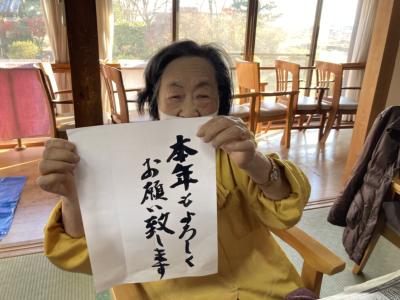 本年もよろしく
お願い致します